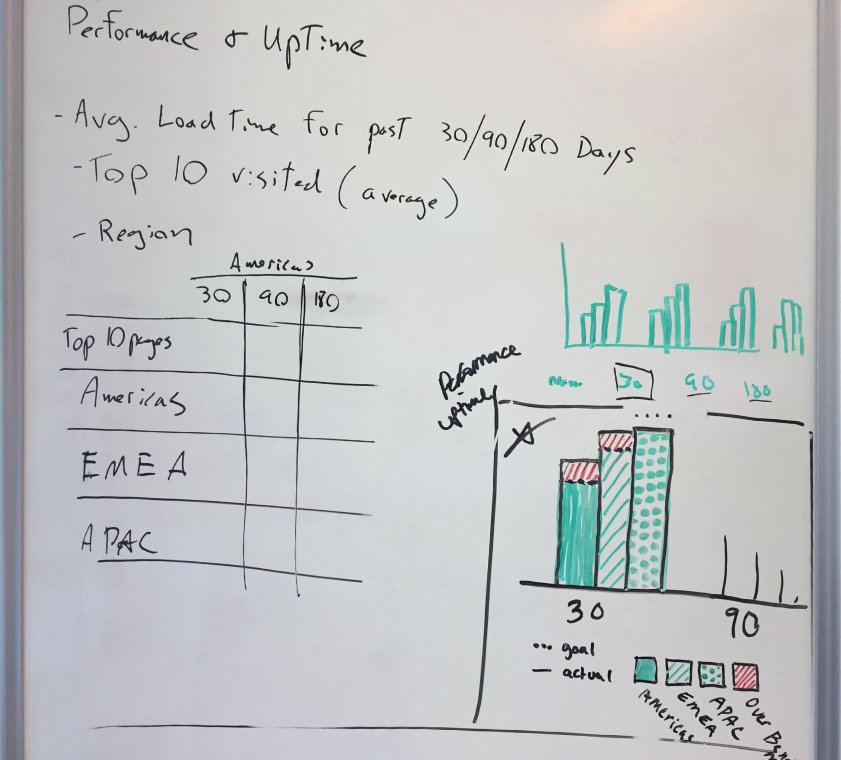 Performance & UpTime
- Avg. Load Time for past 30/90/180 Days
- Top 10 visited (average)
- Region
Americas
30 90 180
Top 10 pages
Americas
EMEA
APAC
30 90 180
Performance
uptime
30 90
... goal
— actual
Americas
EMEA
APAC
Over